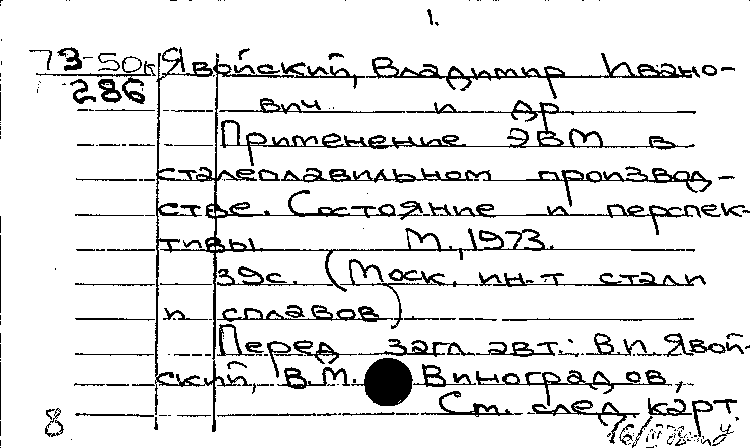 1.
73-50к Явойский, Владимир Ивано-
286 вич и др.
Применение ЭВМ в
сталеплавильном производ-
стве. Состояние и перспек-
тивы. М., 1973.
39с. (Моск. ин-т стали
и сплавов).
Перед загл. авт.: В.И. Явой-
ский, В.М. Виноградов,
См. след. карт.
8